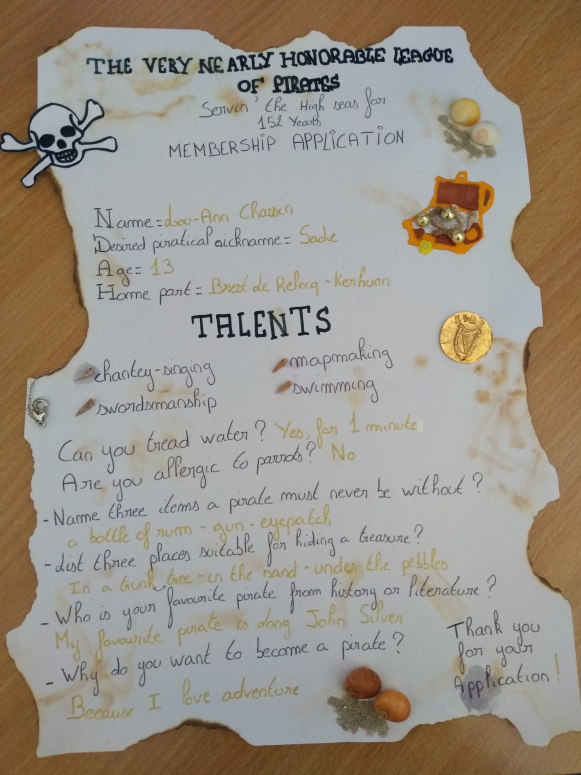 THE VERY NEARLY HONORABLE LEAGUE
OF PIRATES
Servin' the High seas for
152 Years
MEMBERSHIP APPLICATION
Name = Lou-Ann Chassin
Desired piratical nickname = Sadie
Age = 13
Home part = Brest de Relecq - Kerhuon
TALENTS
chantey-singing
mapmaking
swordsmanship
swimming
Can you tread water? Yes, for 1 minute
Are you allergic to parrots? No
- Name three items a pirate must never be without?
a bottle of rum - gun - eyepatch
- List three places suitable for hiding a treasure?
In a trunk tree - in the sand - under the pebbles
- Who is your favourite pirate from history or literature?
My favourite pirate is Long John Silver
- Why do you want to become a pirate?
Because I love adventure
Thank you
for your
Application!